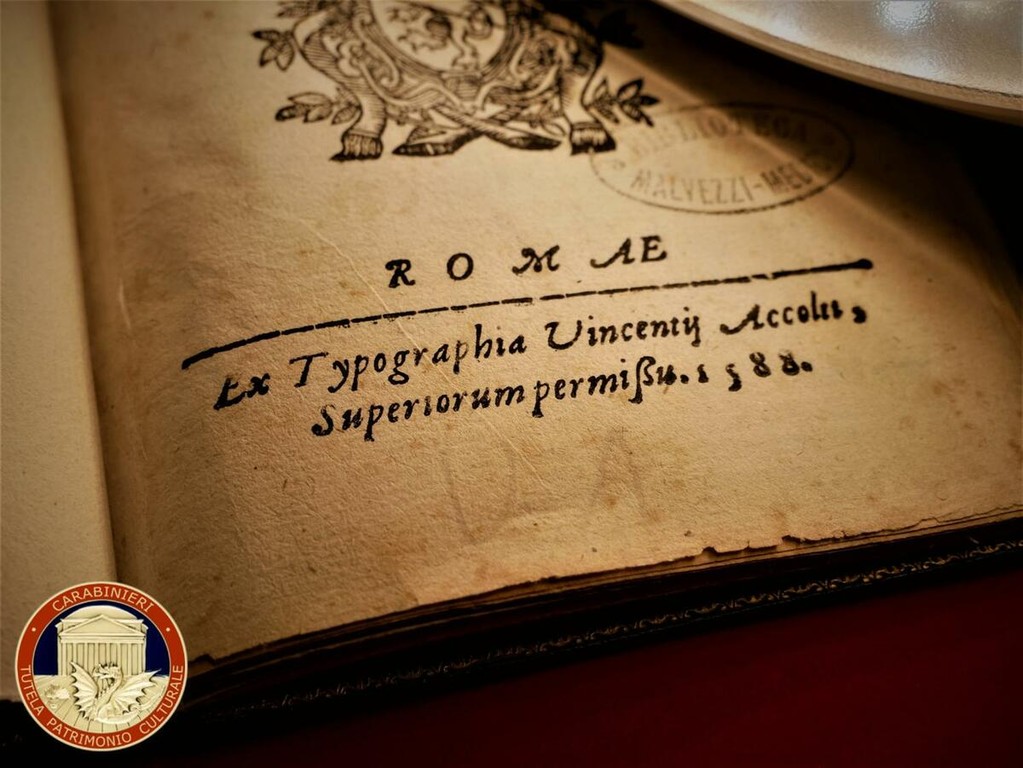 BIBLIOTECA
MALVEZZI-MEDICI
ROMAE
Ex Typographia Uincentij Accolti,
Superiorum permißu. 1588.
CARABINIERI
TUTELA PATRIMONIO CULTURALE